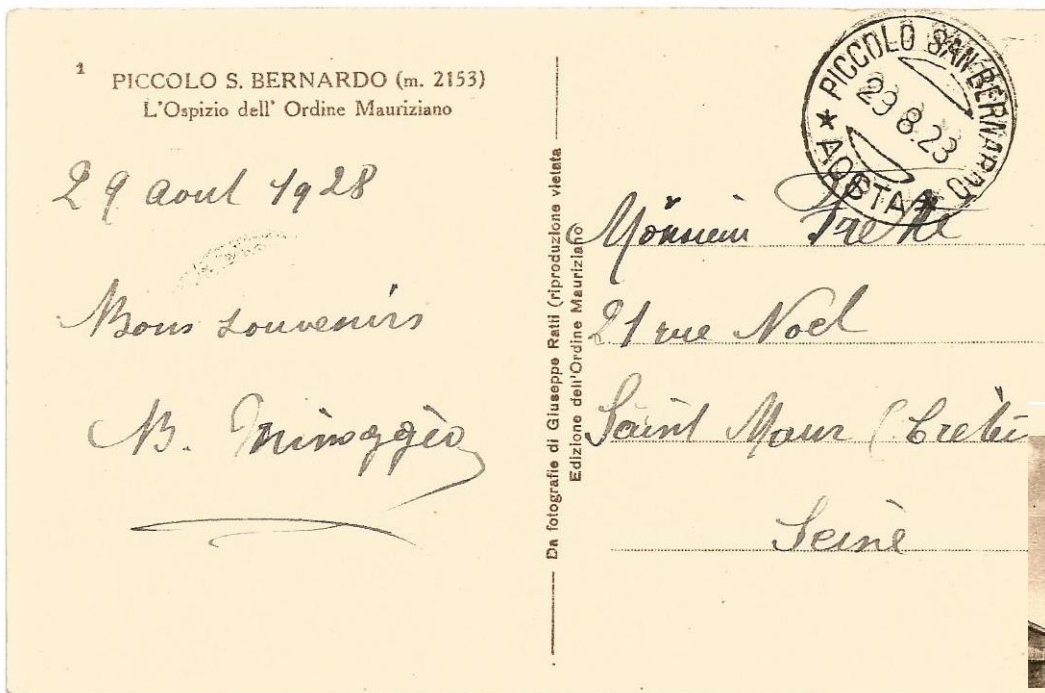 1
PICCOLO S. BERNARDO (m. 2153)
L'Ospizio dell' Ordine Mauriziano
29 aout 1928
Bons souvenirs
B. Minoggio
Da fotografie di Giuseppe Ratti (riproduzione vietata
Edizione dell'Ordine Mauriziano
PICCOLO SAN BERNARDO
29 8.23
AOSTA
Monsieur
21 rue Noel
Saint Maur (Cretei
Seine